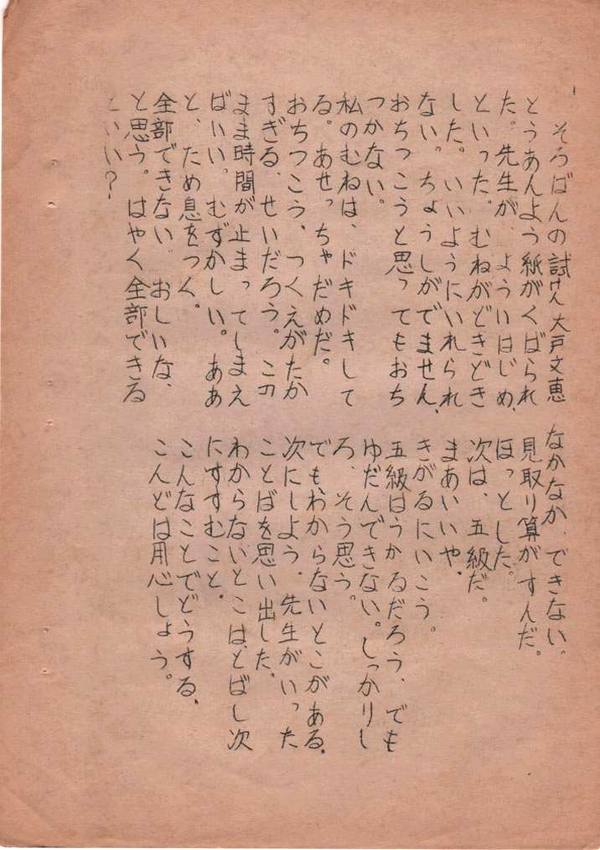 そろばんの試けん 大戸文恵
とうあんよう紙がくばられ
た。先生が、よういはじめ、
といった。むねがどきどき
した。いいようにいれられ
ない。ちょうしがでません、
おちつこうと思ってもおち
つかない。
私のむねは、ドキドキして
る。あせっちゃだめだ。
おちつこう、つくえがたか
すぎる、せいだろう。この
まま時間が止まってしまえ
ばいい。むずかしい。ああ
と、ため息をつく。
全部できない、おしいな、
と思う。はやく全部できる
といい?
なかなか、できない。
見取り算がすんだ。
ほっとした。
次は、五級だ。
まあいいや、
きがるにいこう。
五級はうかるだろう、でも
ゆだんできない。しっかりし
ろ、そう思う。
でも、わからないとこがある、
次にしよう、先生がいった
ことばを思い出した、
わからないとこは、とばし次
にすすむこと、
こんなことでどうする、
こんどは用心しよう。